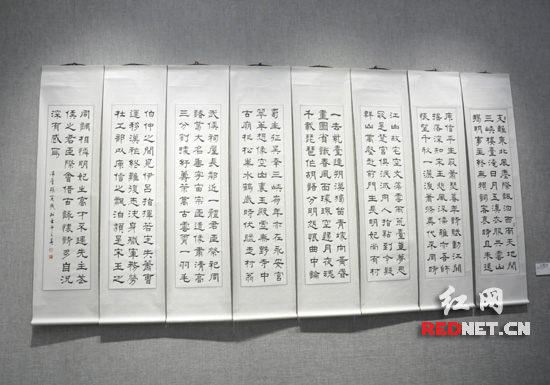 支離東北風塵際飄泊西南天地間
三峽樓臺淹日月五溪衣服共雲山
羯胡事主終無賴詞客哀時且未還
庾信平生最蕭瑟暮年詩賦動江關
搖落深知宋玉悲風流儒雅亦吾師
悵望千秋一灑淚蕭條異代不同時
江山故宅空文藻雲雨荒臺豈夢思
最是楚宮俱泯滅舟人指點到今疑
群山萬壑赴荊門生長明妃尚有村
一去紫臺連朔漠獨留青塚向黃昏
畫圖省識春風面環珮空歸月夜魂
千載琵琶作胡語分明怨恨曲中論
蜀主征吳幸三峽崩年亦在永安宮
翠華想像空山裏玉殿虛無野寺中
古廟杉松巢水鶴歲時伏臘走村翁
武侯祠屋長鄰近一體君臣祭祀同
諸葛大名垂宇宙宗臣遺像肅清高
三分割據紆籌策萬古雲霄一羽毛
伯仲之間見伊呂指揮若定失蕭曹
運移漢祚終難復志決身殲軍務勞
杜工部以庾信之飄泊類是宋玉之
同調相憐明妃生當不逢先主
侯之君臣際會借古懷時多自況
深有感焉
红网
REDNET.CN